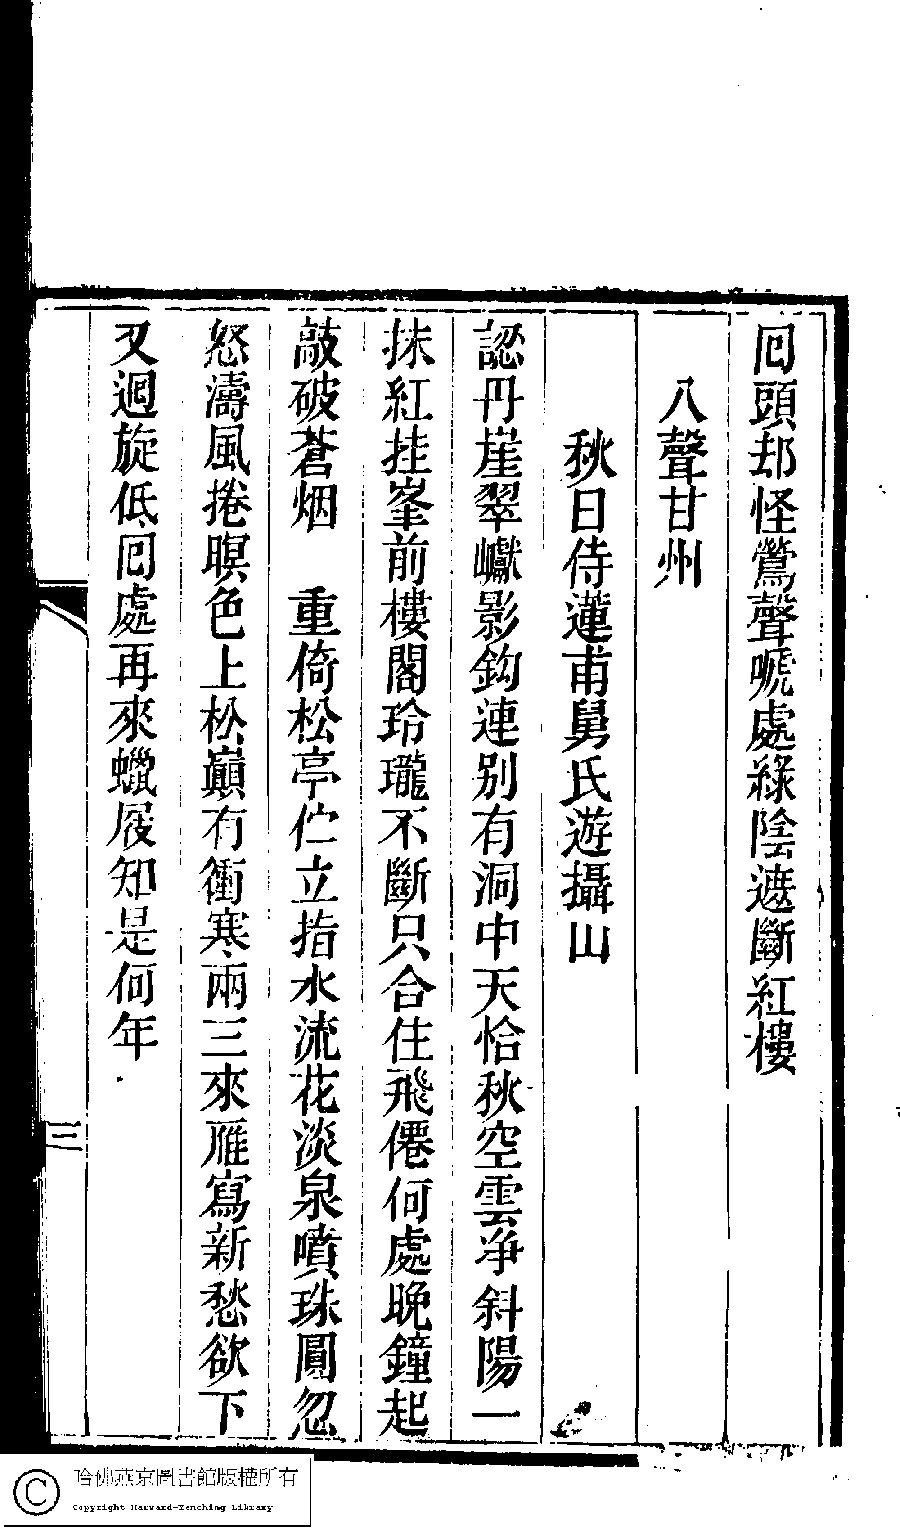 囘頭却怪鶯聲嗁處綠陰遮斷紅樓
八聲甘州
秋日侍蓮甫舅氏遊攝山
認丹崖翠巘影鈎連別有洞中天恰秋空雲净斜陽一
抹紅挂峯前樓閣玲瓏不斷只合住飛僊何處晚鐘起
敲破蒼烟　重倚松亭伫立指水流花淡泉噴珠圓忽
怒濤風捲暝色上松巔有衝寒兩三來雁寫新愁欲下
又迴旋低囘處再來蠟屐知是何年
三
哈佛燕京圖書館版權所有
Copyright Harvard-Yenching Library